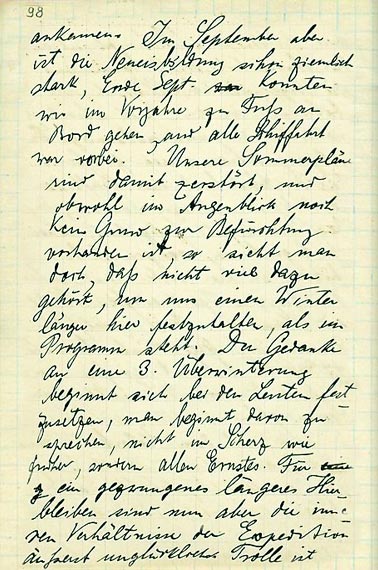 98
ankamen. Im September aber
ist die Neueisbildung schon ziemlich
stark, Ende Sept. konnten
wir im Vorjahre zu Fuss an
Bord gehen, und alle Schiffahrt
war vorbei. Unsere Sommerpläne
sind damit zerstört, und
obwohl im Augenblick noch
kein Grund zur Befürchtung
vorhanden ist, so sieht man
doch, daß nicht viel dazu
gehört, um uns einen Winter
länger hier festzuhalten, als im
Programm steht. Der Gedanke
an eine 3. Überwinterung
beginnt sich bei den Leuten fest
zusetzen, man beginnt davon zu
sprechen, nicht im Scherz wie
früher, sondern allen Ernstes. Für
ein gezwungenes längeres Hier
bleiben sind nun aber die inne-
ren Verhältnisse der Expedition
äusserst unglückliche. Trolle ist